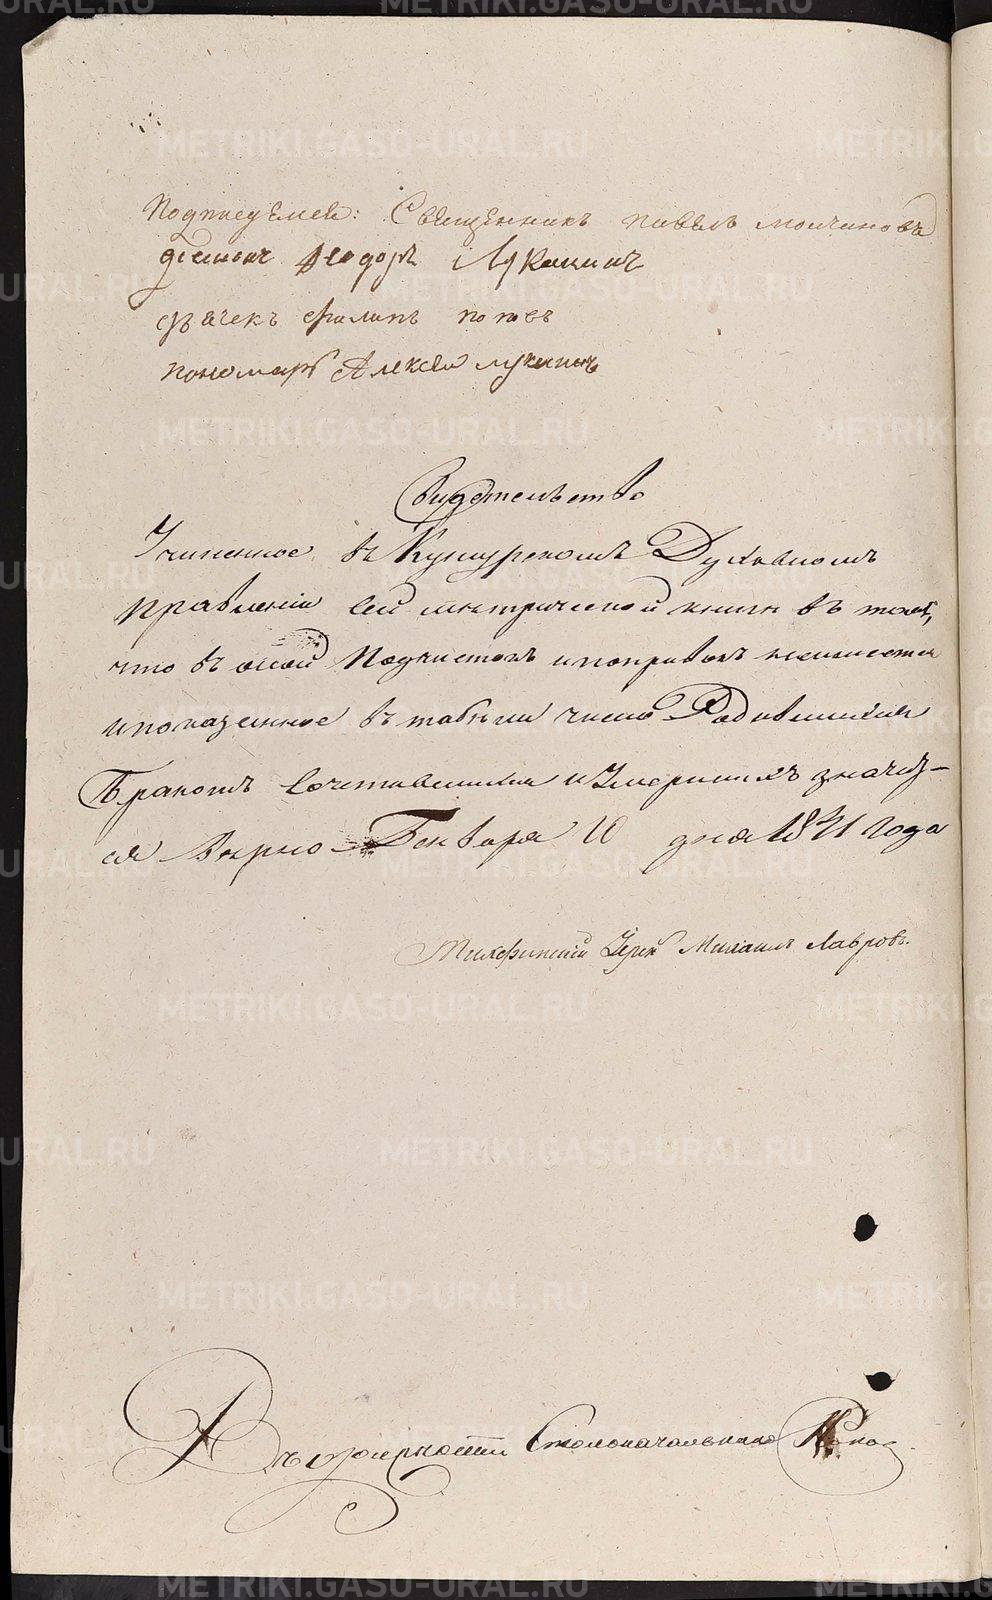 Подписуемся: Священникъ павелъ молчановъ
діаконъ Феодоръ Лукинъ
дьячекъ филипъ поповъ
пономарь Алексей лукинъ
Свидетельство
Учиненное въ Кунгурскомъ Духовномъ
правленіи сей метрической книги въ томъ,
что въ оной Подчистокъ и поправокъ неимеется
и показанное въ табели число Родившихся
Бракомъ сочетавшихся и Умершихъ значит-
ся Верно Генваря 10 дня 1841 года
Михаилъ Лавровъ.
Въ должности Столоначальника
METRIKI.GASO-URAL.RU